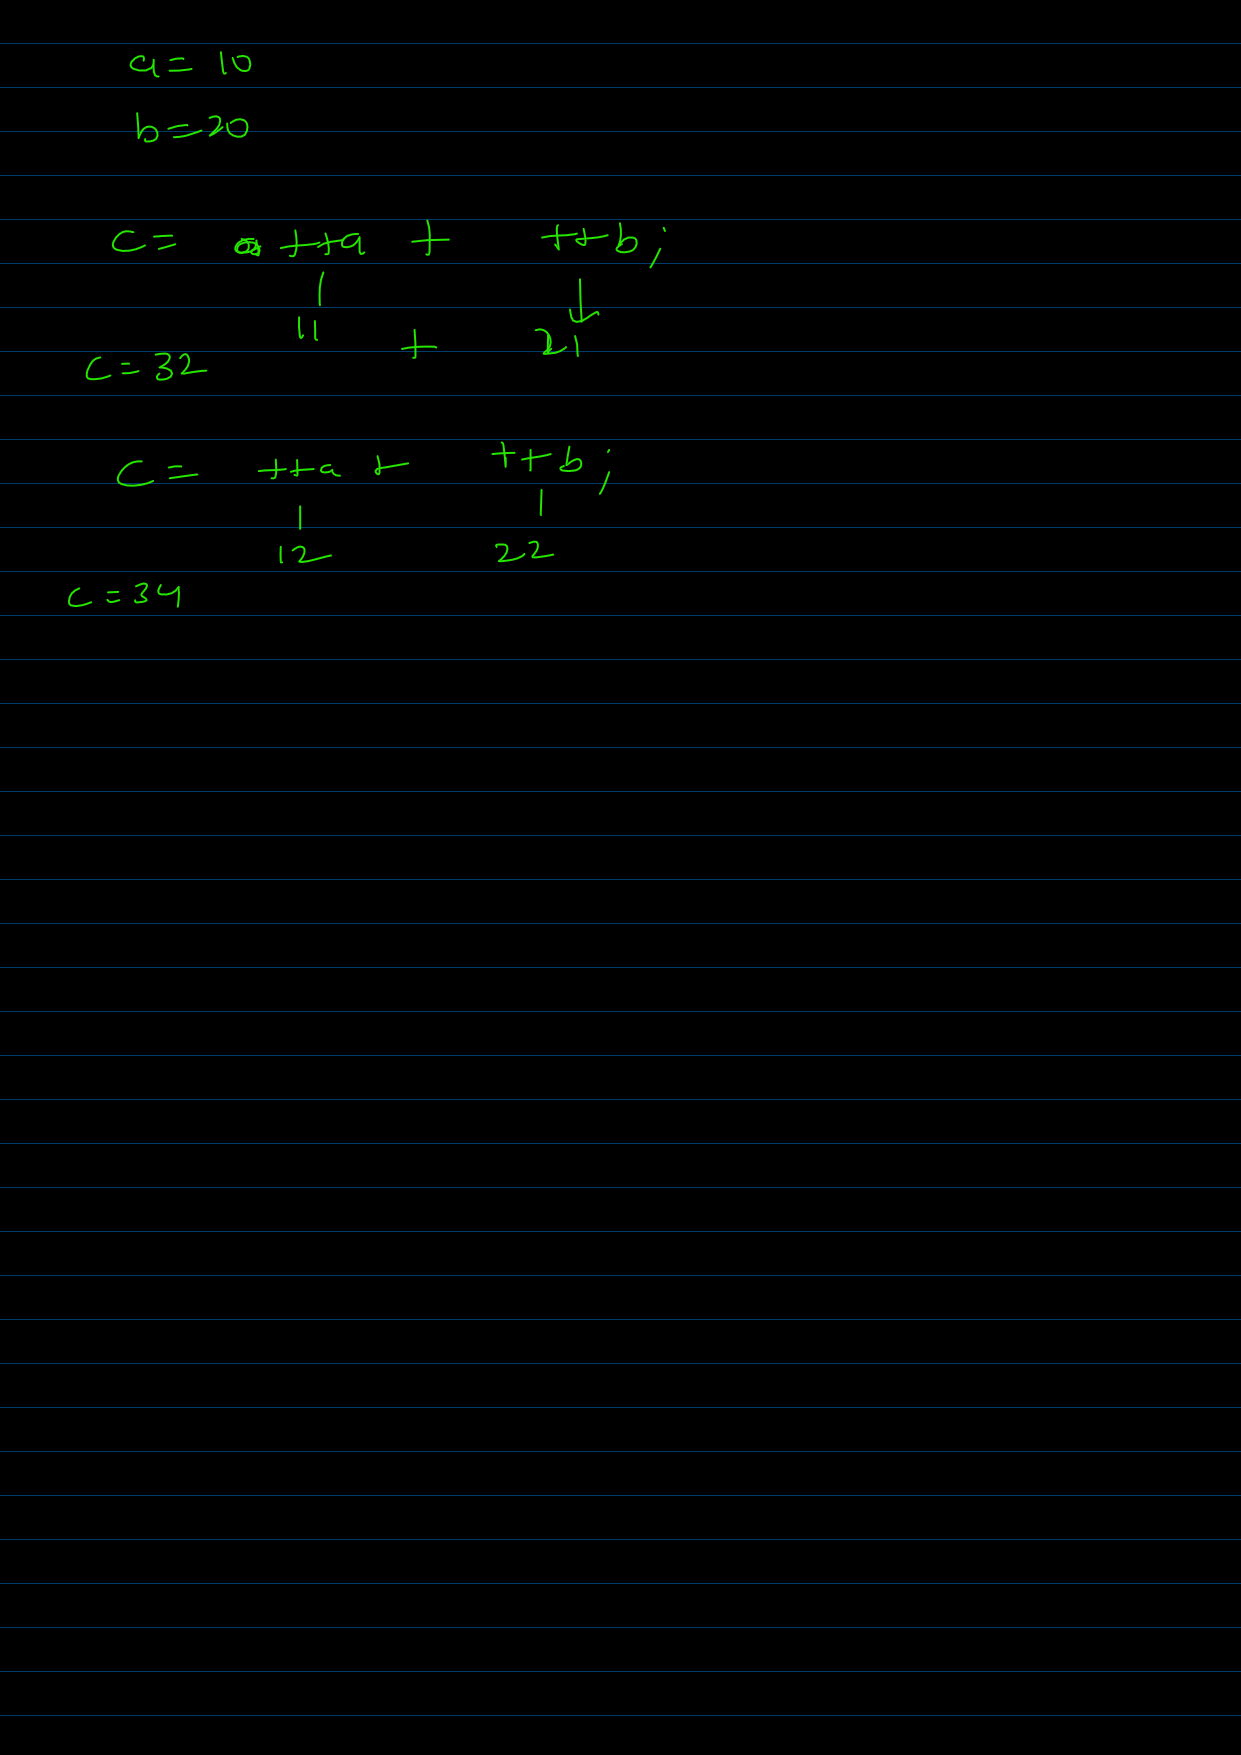 a = 10
b = 20
C = ++a + ++b;
11 + 21
C = 32
C = ++a + ++b;
12 22
C = 34